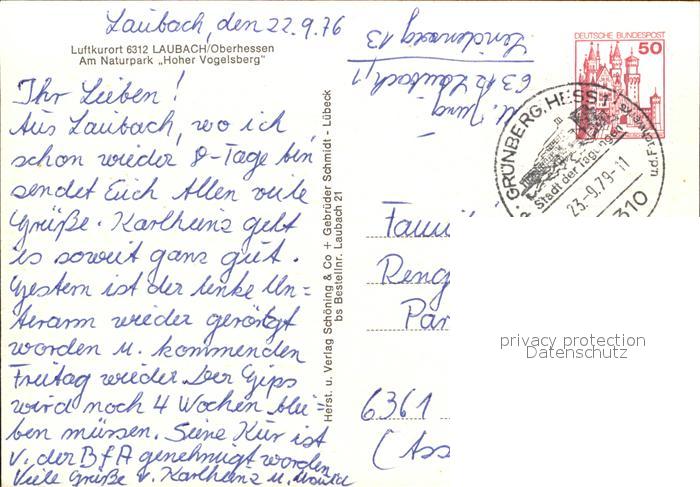 Laubach, den 22.9.76
Luftkurort 6312 LAUBACH/Oberhessen
Am Naturpark „Hoher Vogelsberg"
Ihr Lieben!
Aus Laubach, wo ich
schon wieder 8-Tage bin
sendet Euch Allen viele
Grüße. Karlheinz geht
es soweit ganz gut.
Gestern ist der linke Un=
terarm wieder geröngt
worden u. kommenden
Freitag wieder. Der Gips
wird noch 4 Wochen blei=
ben müssen. Seine Kur ist
v. der BfA genehmigt worden
Viele Grüße v. Karlheinz u.
Herst. u. Verlag Schöning & Co + Gebrüder Schmidt - Lübeck
bs Bestellnr. Laubach 21
U. Jung
6312 Laubach 1
Lindenweg 13
DEUTSCHE BUNDESPOST
50
GRÜNBERG, HESS 1
Stadt der Tagungen
23.-9.79-11
6310
Fami
Reng
Par
6361
(Ass
privacy protection
Datenschutz